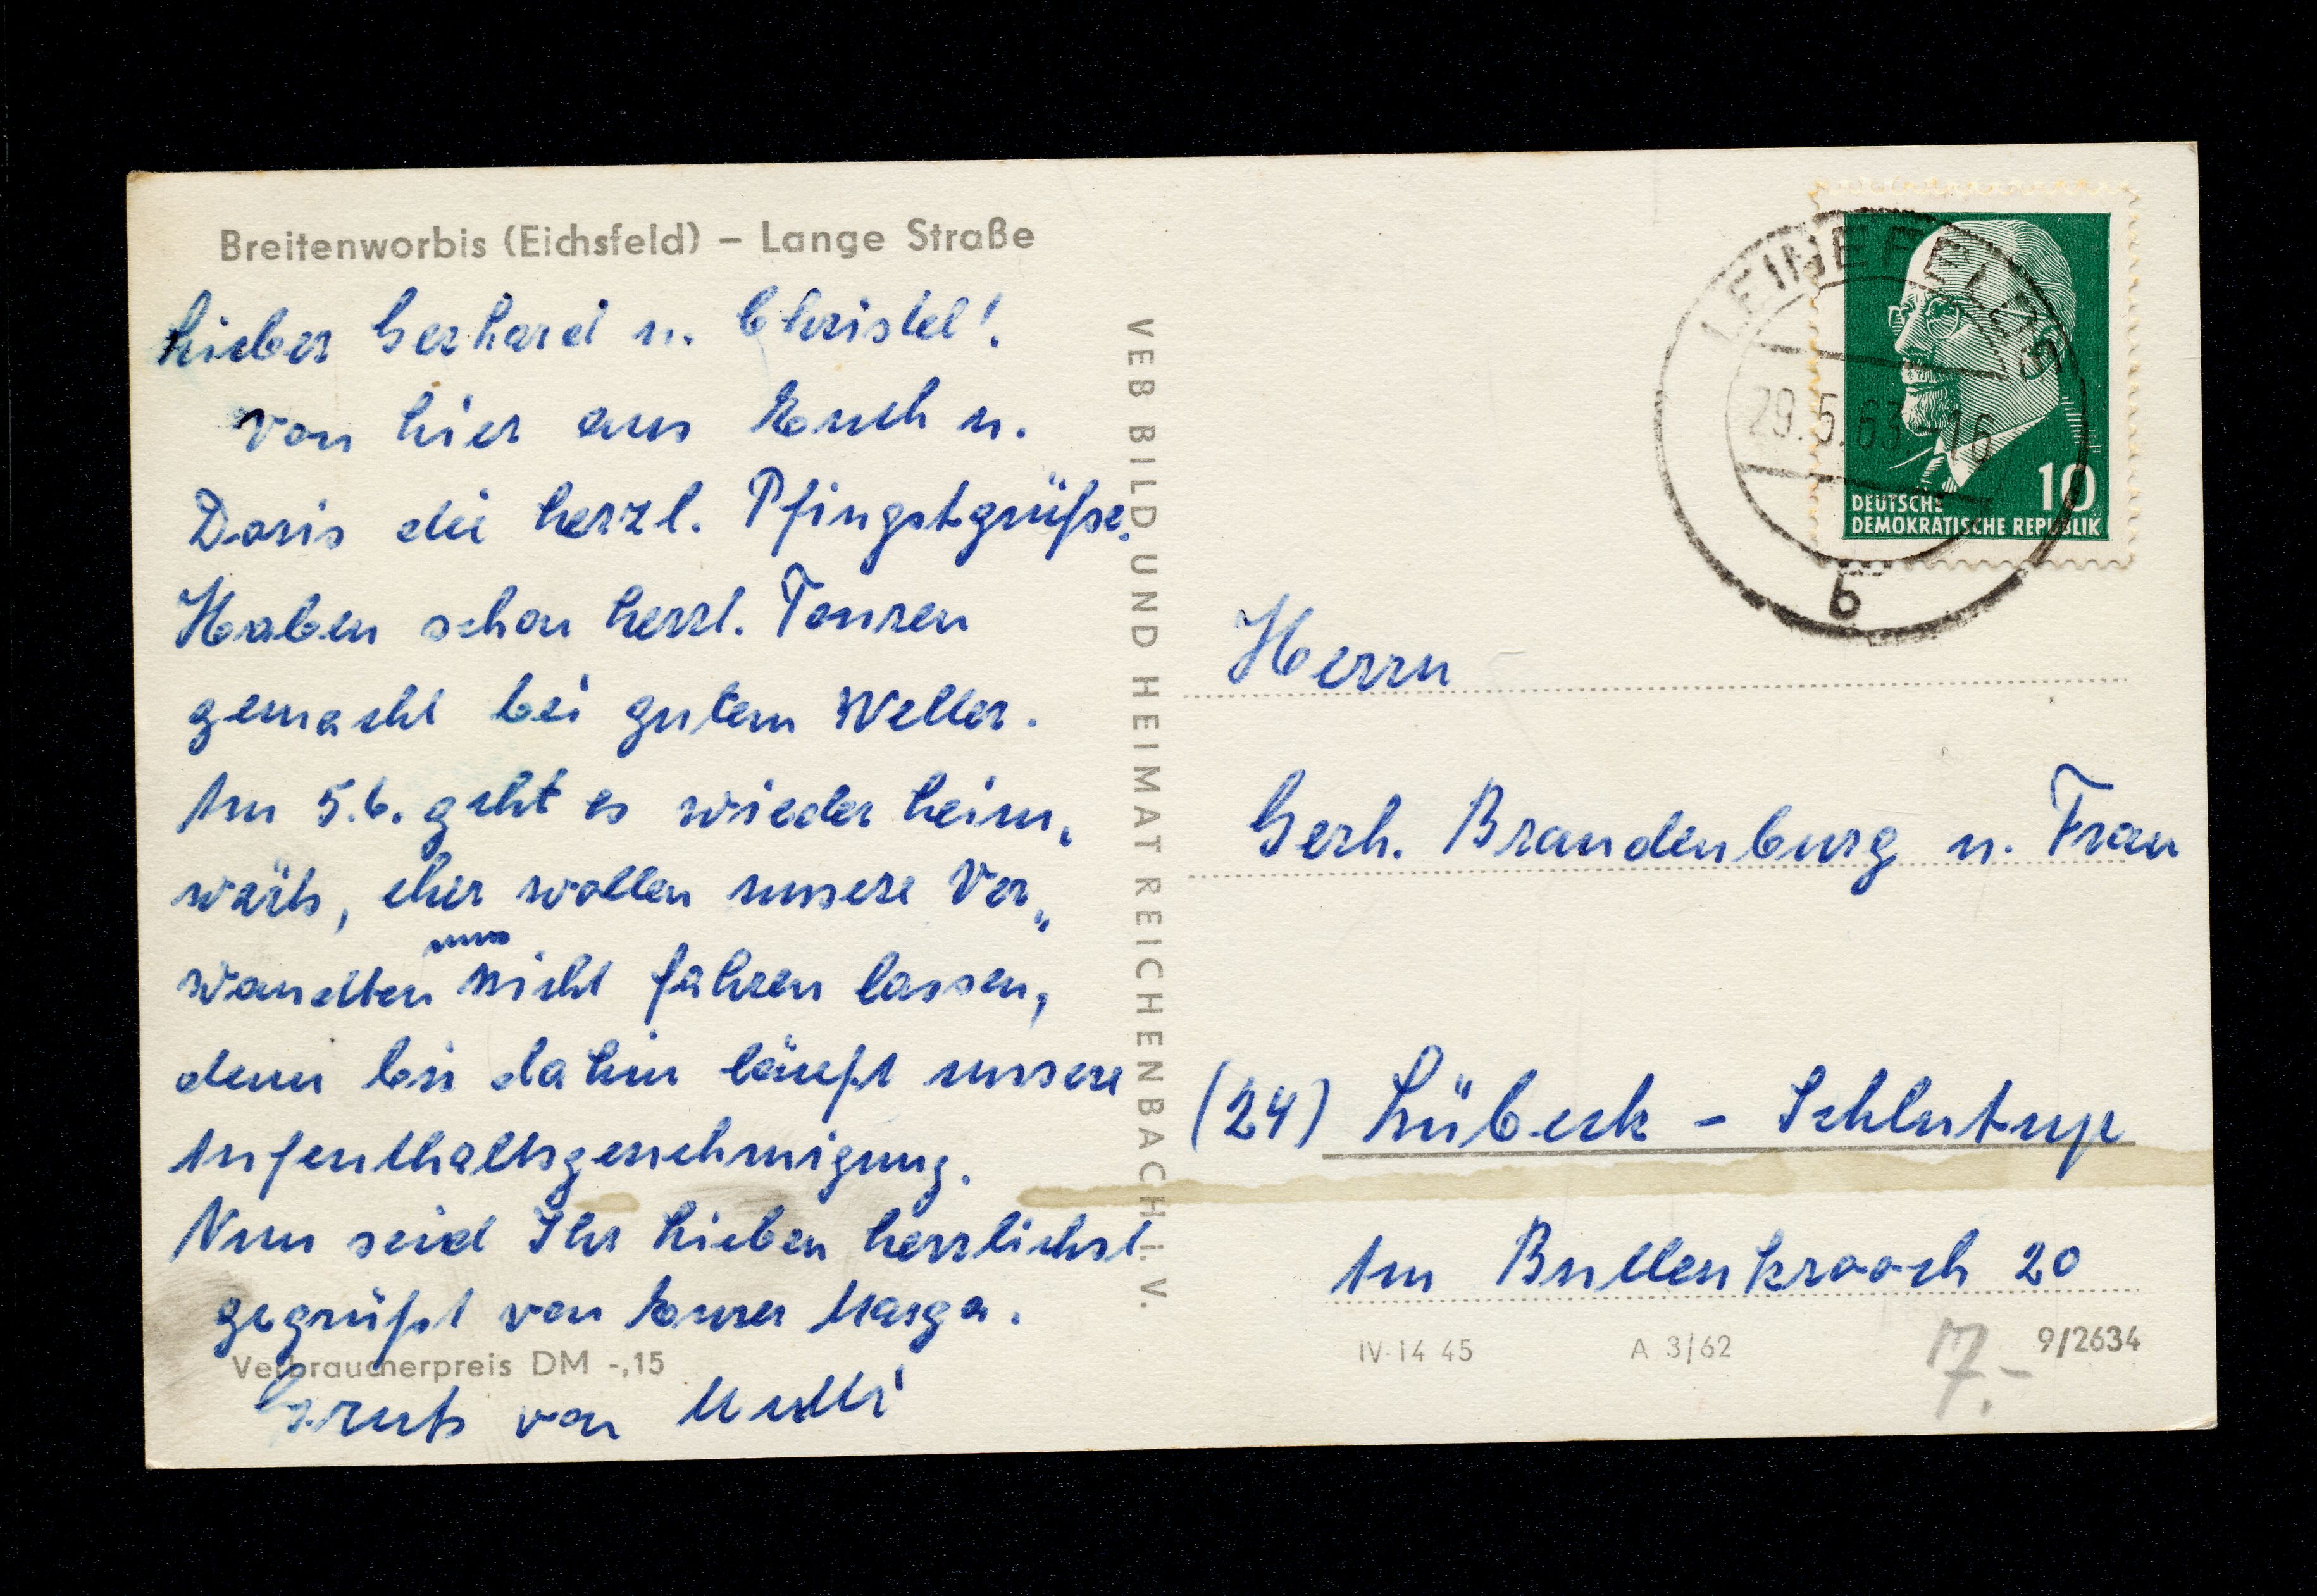 Breitenworbis (Eichsfeld) – Lange Straße
Lieber Gerhard u. Christel!
Von hier aus Euch u.
Doris die herzl. Pfingstgrüße.
Haben schon herrl. Touren
gemacht bei gutem Wetter.
Am 5.6. geht es wieder heim„
wärts, eher wollen unsere Ver„
uns
wandten nicht fahren lassen,
denn bis dahin läuft unsere
Aufenthaltsgenehmigung.
Nun seid Ihr Lieben herzlichst
gegrüßt von Eurer Marga.
Verbraucherpreis DM -,15
Gruß von Mutti
VEB BILD UND HEIMAT REICHENBACH I. V.
LEINEFELDE
29.5.63-16
b
10
DEUTSCHE
DEMOKRATISCHE REPUBLIK
Herrn
Gerh. Brandenburg u. Frau
(24) Lübeck - Schlutup
Am Bullenkrooch 20
IV-14 45 A 3/62 9/2634
7.-